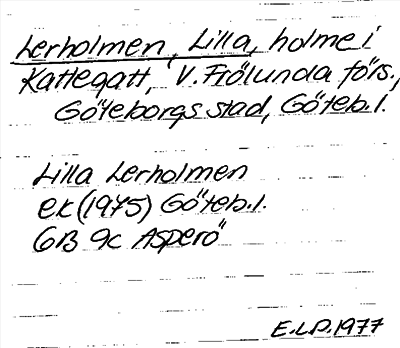 Lerholmen, Lilla, holme i
Kattegatt, V. Frölunda förs.,
Göteborgs stad, Göteb.l.
Lilla Lerholmen
ek (1975) Göteb.l.
6B 9c Asperö
E.L.P. 1977